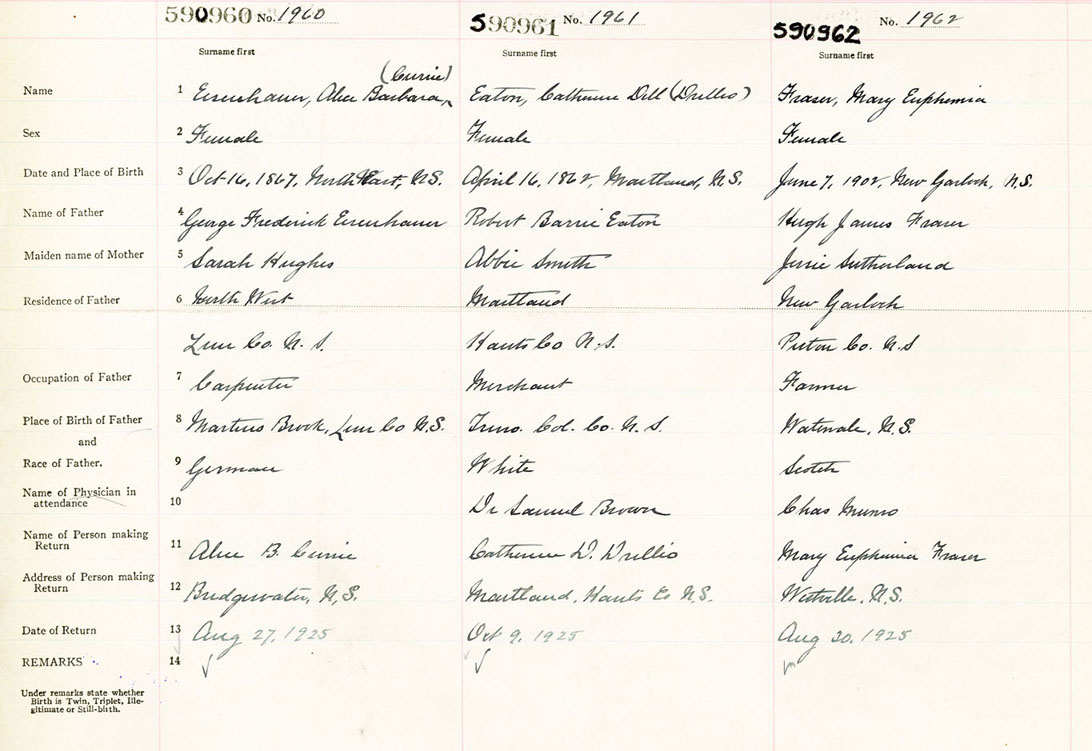 590960 No. 1960 590961 No. 1961 590962 No. 1962
Surname first Surname first Surname first
(Currie)
Name 1 Eisenhauer, Alice Barbara, Eaton, Catherine Dill (Drillio) Fraser, Mary Euphemia
Sex 2 Female Female Female
Date and Place of Birth 3 Oct 16, 1867, North West, N.S. April 16, 1862, Maitland, N.S. June 7, 1902, New Gairloch, N.S.
Name of Father 4 George Frederick Eisenhauer Robert Barrie Eaton Hugh James Fraser
Maiden name of Mother 5 Sarah Hughes Abbie Smith Jessie Sutherland
Residence of Father 6 North West Maitland New Gairloch
Lun Co. N. S. Hants Co N.S. Pictou Co. N.S
Occupation of Father 7 Carpenter Merchant Farmer
Place of Birth of Father 8 Martins Brook, Lun Co N.S. Truro. Col. Co. N. S. Watervale, N.S.
and
Race of Father. 9 German White Scotch
Name of Physician in
attendance 10 Dr Samuel Brown Chas Munro
Name of Person making
Return 11 Alice B. Currie Catherine D. Drillio Mary Euphemia Fraser
Address of Person making
Return 12 Bridgewater, N.S. Maitland, Hants Co N.S. Westville, N.S.
Date of Return 13 Aug 27, 1925 Oct 9, 1925 Aug 20, 1925
REMARKS 14
Under remarks state whether
Birth is Twin, Triplet, Ille-
gitimate or Still-birth.